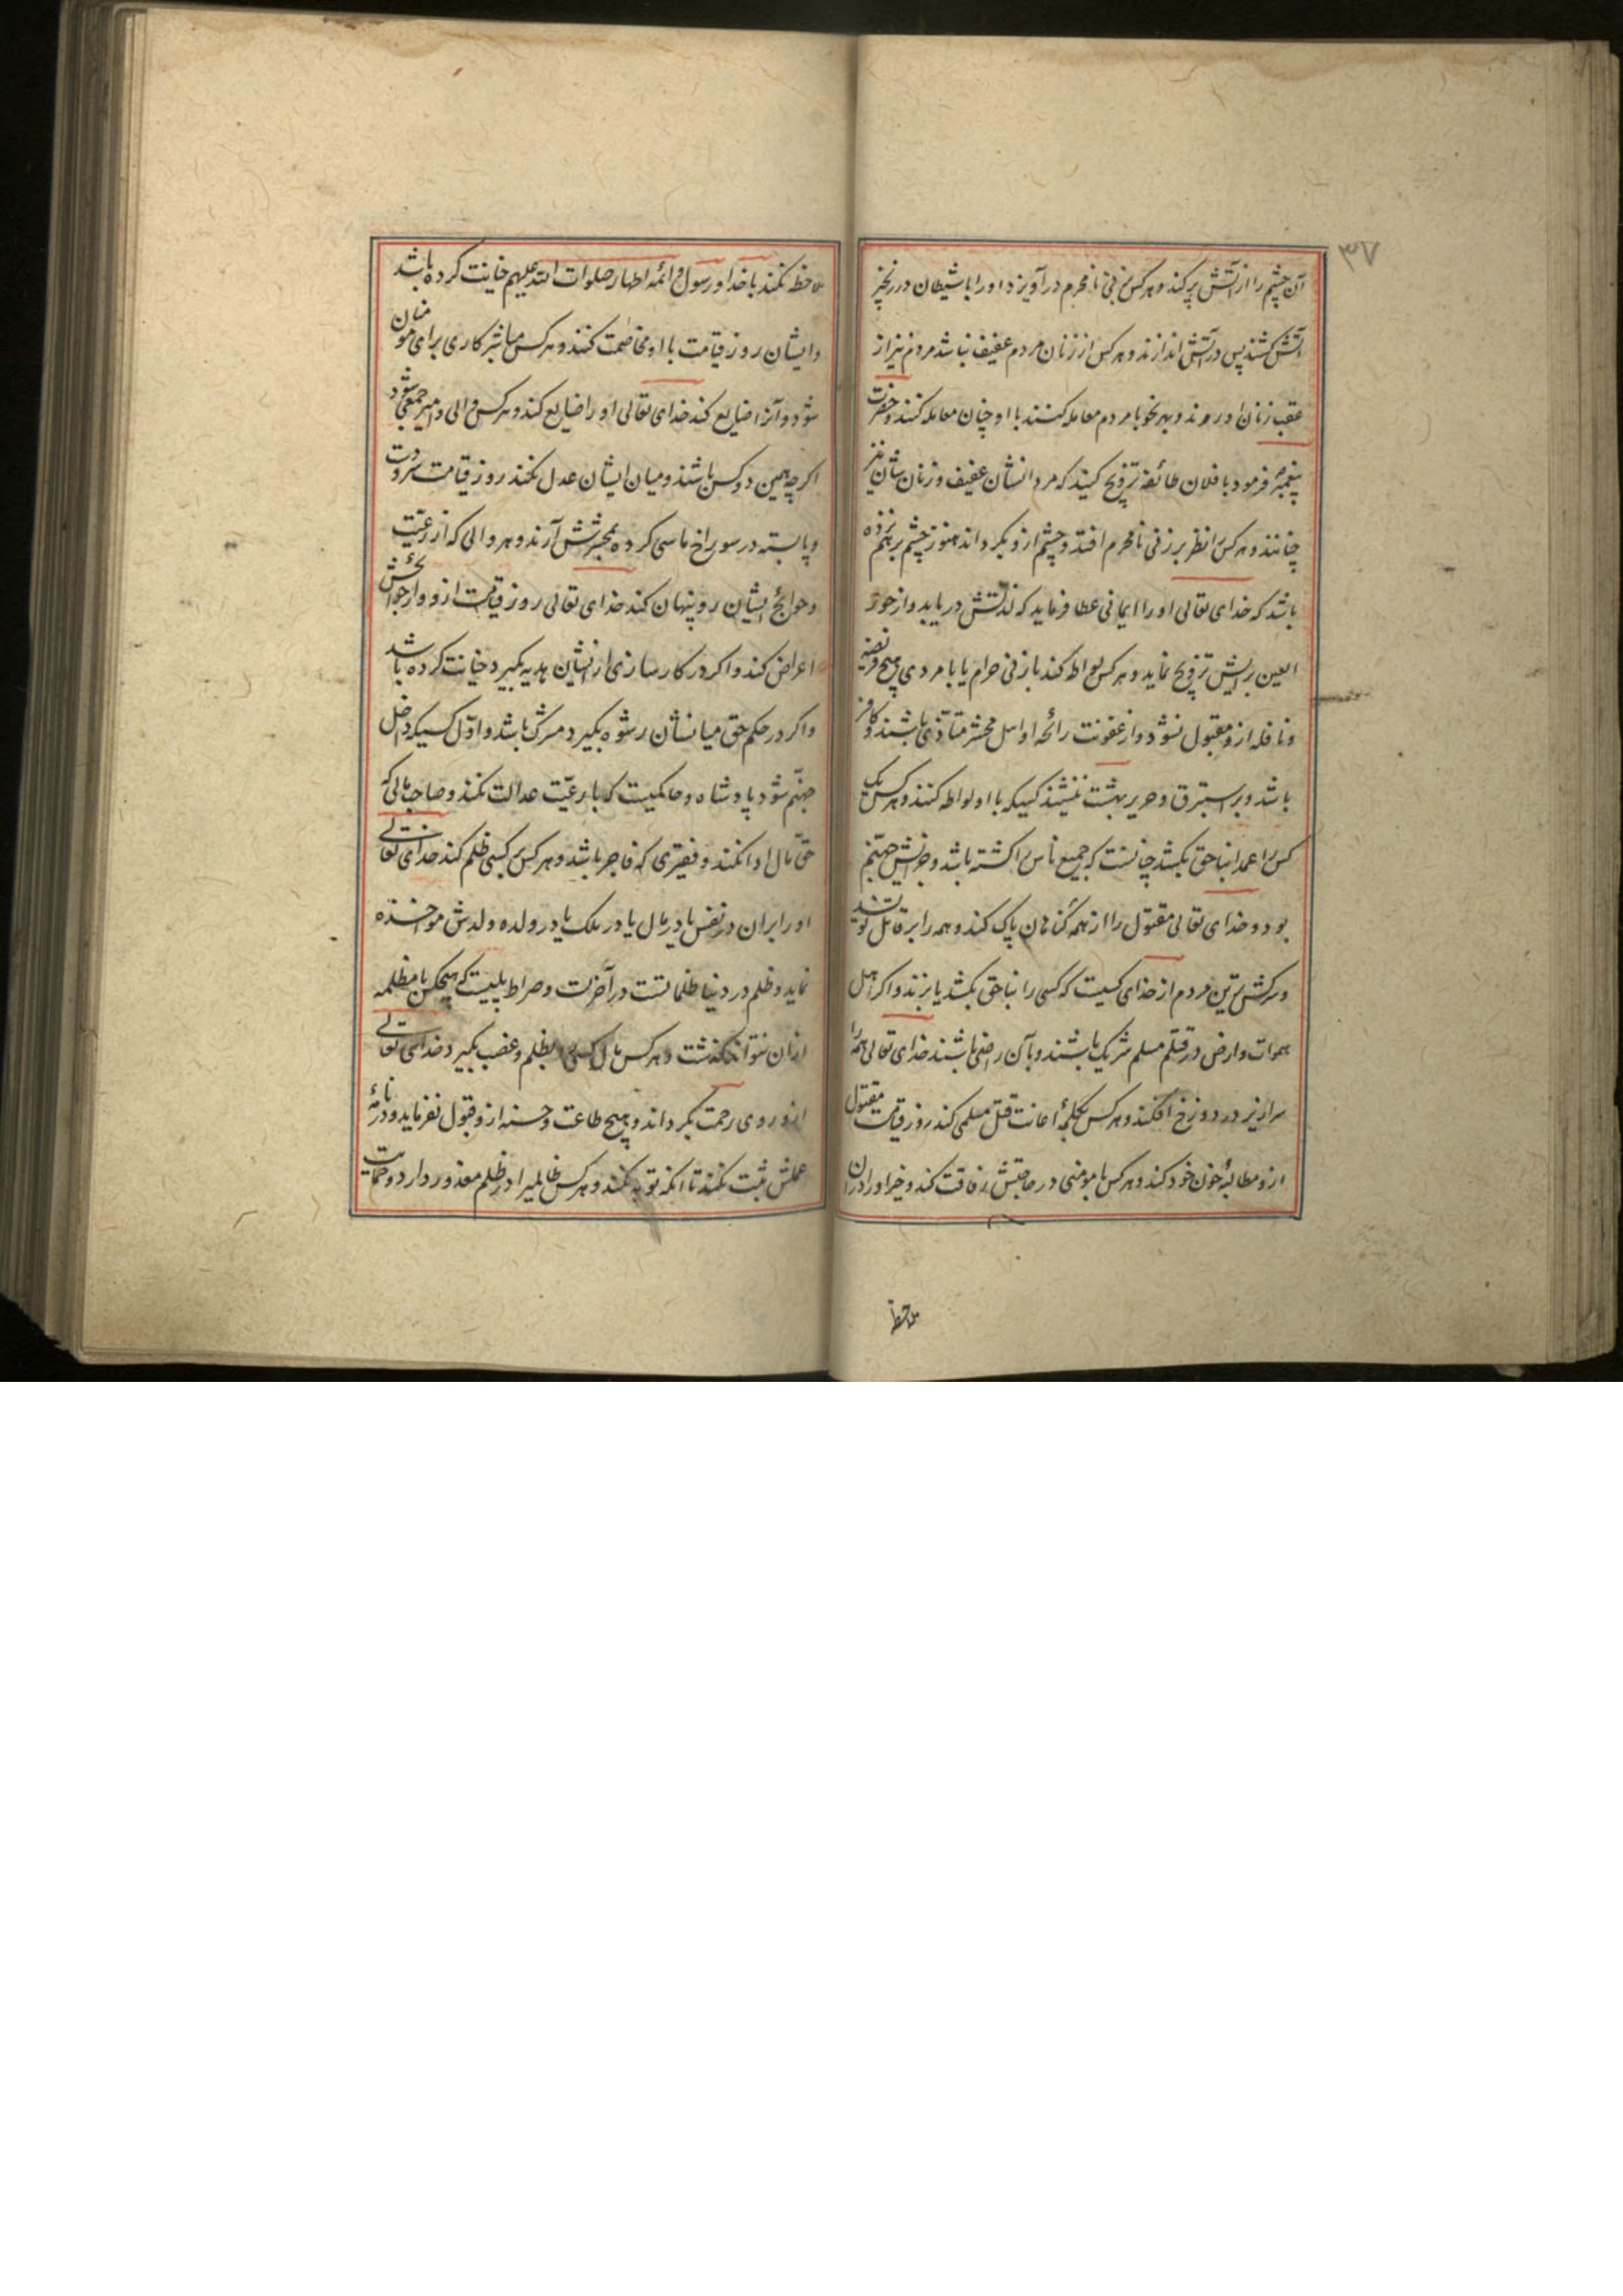 ۳۷
آن چشم را از آتش پر کند و هر کس بزنی نامحرم در آویزد او را با شیطان در زنجیر
آتش کشند پس در آتش اندازند و هر کس از زنان مردم عفیف نباشد مردم نیز از
عقب زنان او روند و بهر نحو با مردم معامله کنند با او چنان معامله کنند و حضرت
پیغمبر فرمود با فلان طائفه تزویج کنید که مردانشان عفیف و زنان شان نیز
چنانند و هر کس را نظر بر زنی نامحرم افتد و چشم ازو بگرداند هنوز چشم بر هم نزده
باشد که خدای تعالی او را ایمانی عطا فرماید که لذتش دریابد و از حور
العین برایش تزویج نماید و هر کس لواطه کند با زنی حرام یا با مردی هیچ فریضه
و نافله ازو مقبول نشود و از عفونت رائحه او اهل محشر متأذی باشند و کافر
باشد و بر استبرق و حریر بهشت ننشیند کسیکه با او لواطه کنند و هر کس یک
کس را عمدا بناحق بکشد چنانست که جمیع ناس را کشته باشد و جزایش جهنم
بود و خدای تعالی مقتول را از همه گناهان پاک کند و همه را بر قاتل نویسند
و سرکش ترین مردم از خدای کسیست که کسی را بناحق بکشد یا بزند و اگر اهل
سموات و ارض در قتلم مسلم شریک باشند و بآن راضی باشند خدای تعالی همه را
سرازیر در دوزخ افکند و هر کس بکلمهٔ اعانت قتل مسلمی کند روز قیامت مقتول
ازو مطالبهٔ خون خود کند و هر کس با مومنی در حاجتش رفاقت کند و خیر او را دران
ملاحظه
ملاحظه نکند با خدا و رسول و ائمه اطهار صلوات الله علیهم خیانت کرده باشد
و ایشان روز قیامت با او مخاصمت کنند و هر کس مباشر کاری برای مومنان
شود و آنرا ضایع کند خدای تعالی او را ضایع کند و هر کس والی و امیر جمعی شود
اگر چه همین دو کس باشند و میان ایشان عدل نکند روز قیامت سر و دست
و پا بسته در سوراخ ماسی کرده بمحشرش آرند و هر والی که از رعیت
و حوائج ایشان رو پنهان کند خدای تعالی روز قیامت ازو و از حوائجش
اعراض کند و اگر در کارسازی ازیشان هدیه بگیرد خیانت کرده باشد
و اگر در حکم حق میانشان رشوه بگیرد مشرک باشد و اول کسیکه داخل
جهنم شود پادشاه و حاکمیست که با رعیت عدالت نکند و صاحب مالی که
حق مال ادا نکند و فقیری که فاجر باشد و هر کس بر کسی ظلم کند خدای تعالی
او را بران در نفس یا در مال یا در ملک یا در ولده ولدش مواخذه
نماید و ظلم در دنیا ظلماتست در آخرت و صراط پلیست که هیچکس با مظلمه
ازان نتواند گذشت و هر کس مال کسی بظلم و غضب بگیرد خدای تعالی
ازو روی رحمت بگرداند و هیچ طاعت و حسنه ازو قبول نفرماید و در نامهٔ
عملش ثبت نکند تا انکه توبه نکند و هر کس ظالمیرا در ظلم معذور دارد و حمایت